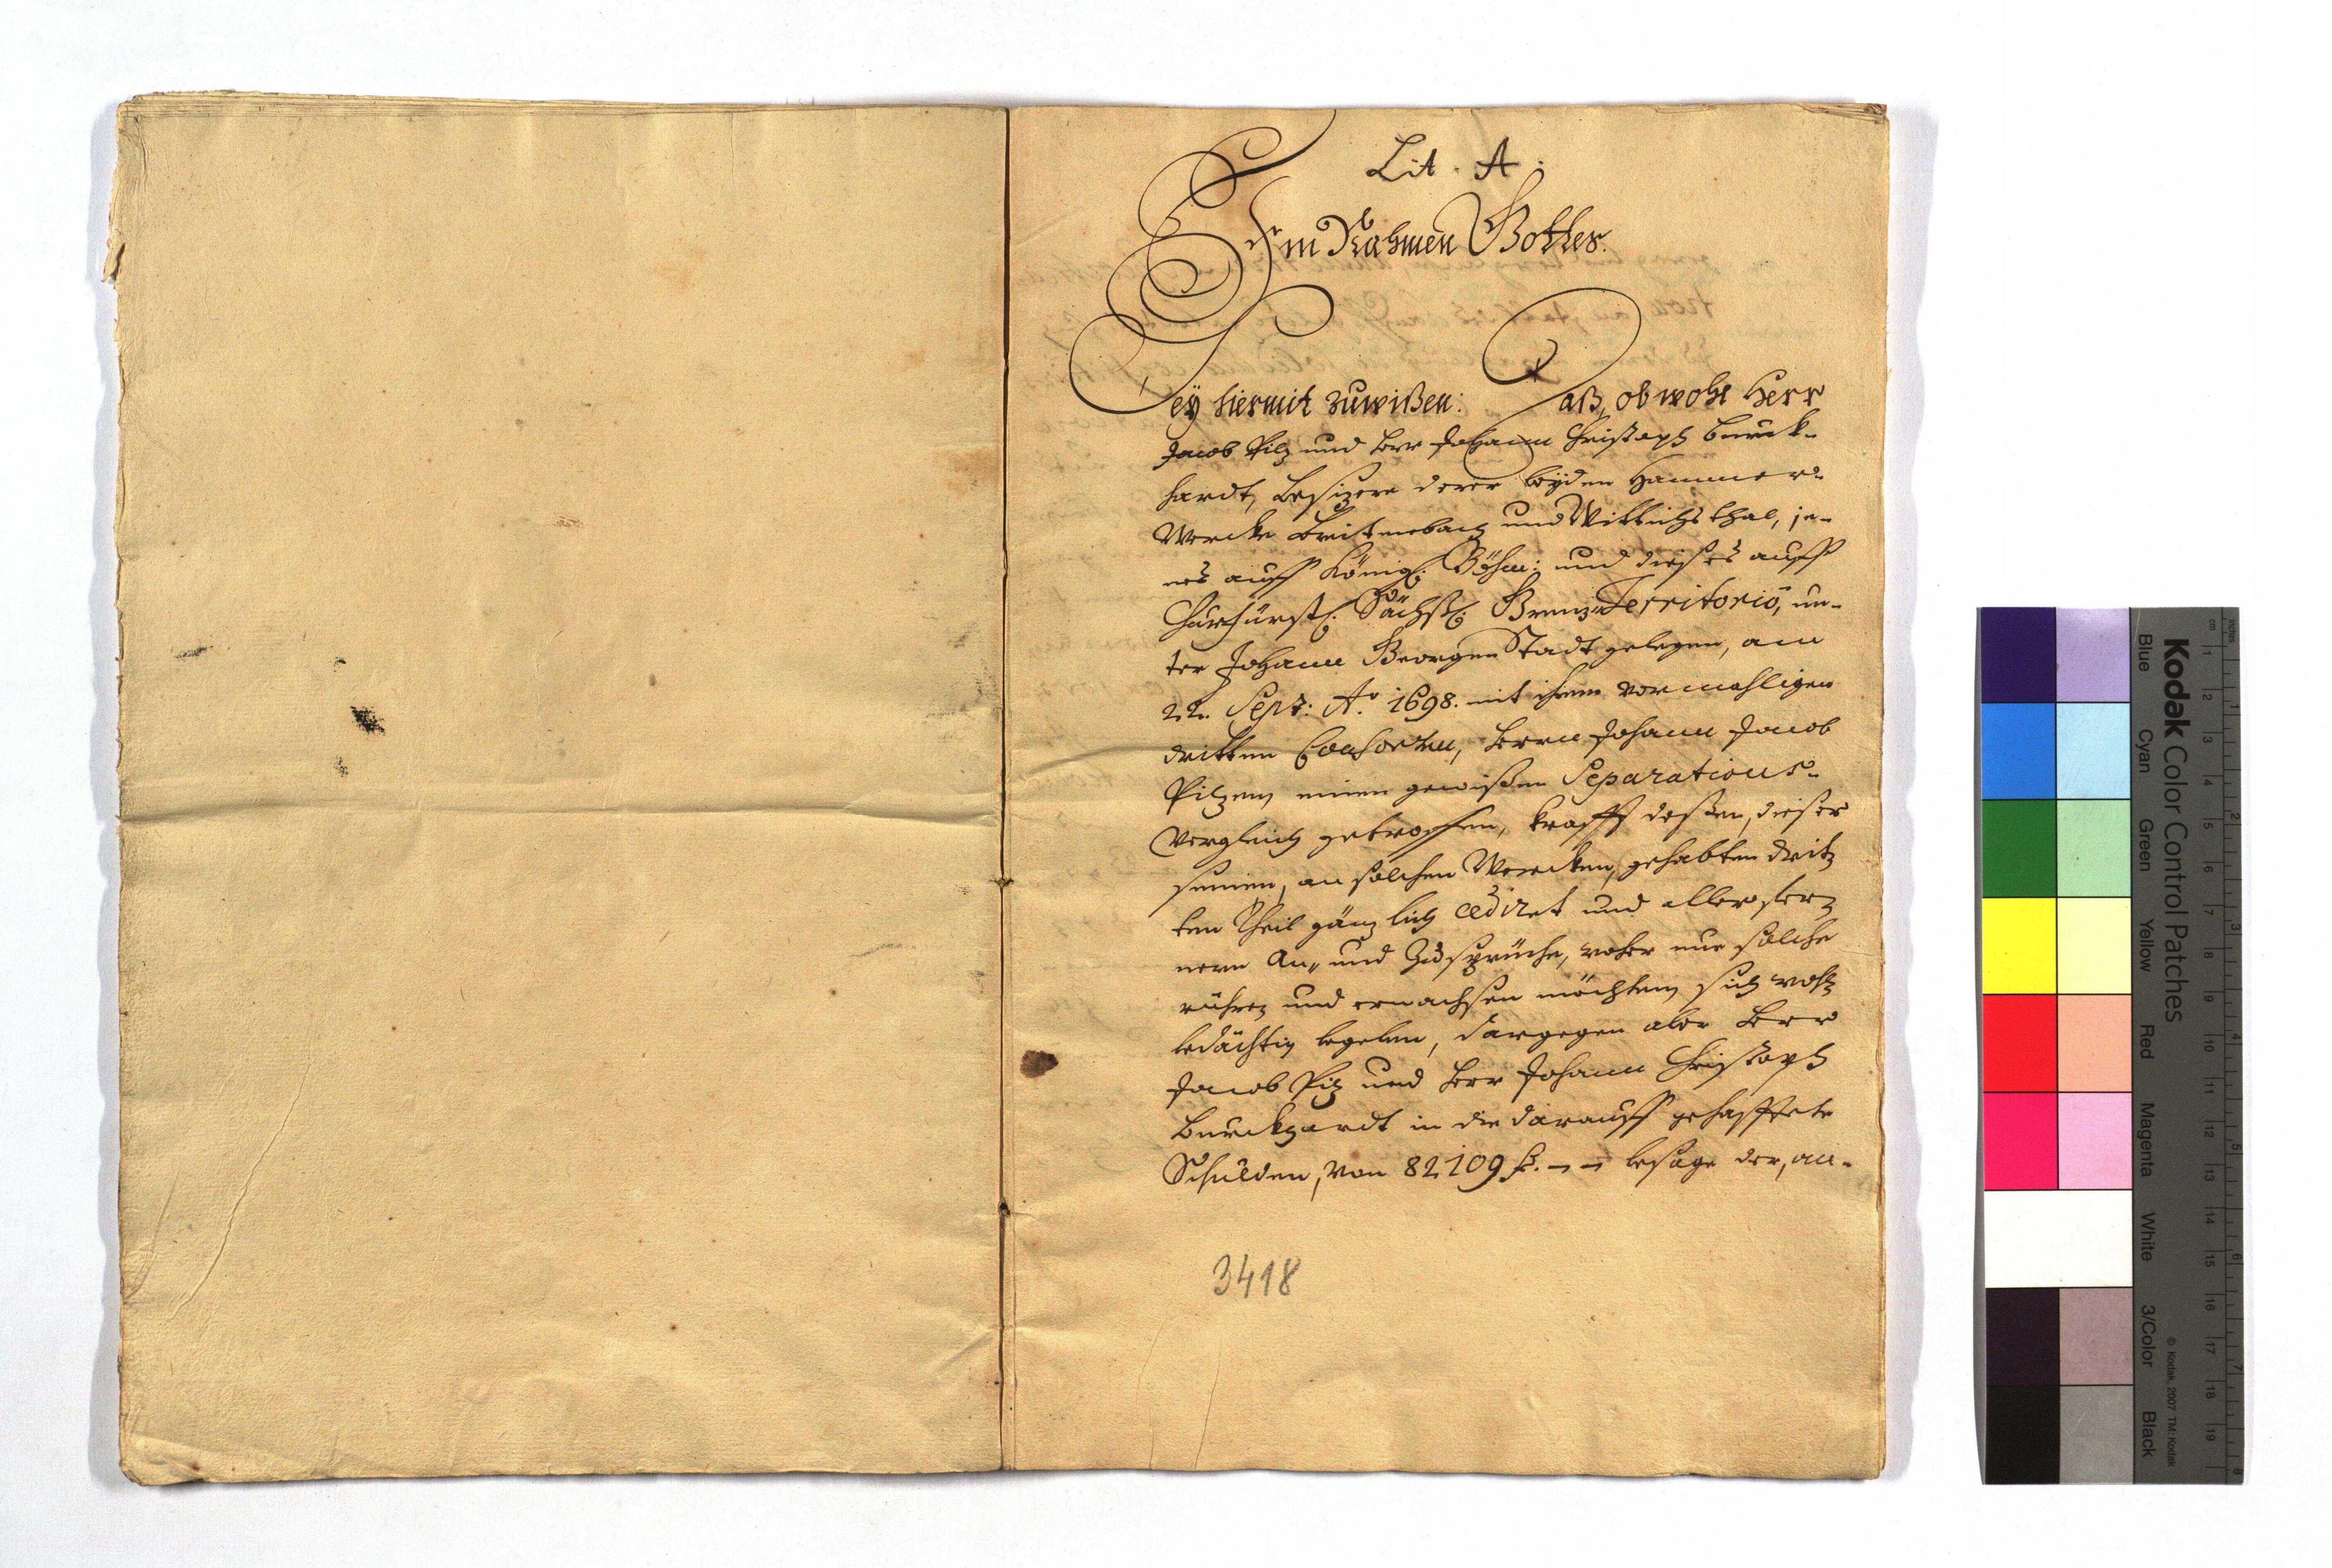 Lit. A.
Im Nahmen Gottes.
Sey hiermit zuwißen: Daß, obwohl Herr
Jacob Pilz und Herr Johann Christoph Burck-
hardt, Besizere derer beÿden Hammer-
Wercke Breitenbach und Wittichsthal, je-
nes auff Königl. Böhm: und dieses auff
Churfürstl. Sächßl. Grenz-Territorio, un-
ter Johann Georgen Stadt gelegen, am
22. Sept: Ao. 1698. mit ihrem vormahligen
dritten Consorten, Herrn Johann Jacob
Pilzen, einen gewißen Separations-
Vergleich getroffen, krafft deßen, dieser
seinen, an solchen Wercken, gehabten drit-
ten Theil gänzlich cediret und aller fer-
nern An- und Zusprüche, woher nur solche
rühren und erwachsen möchten, sich wohl-
bedächtig begeben, dargegen aber Herr
Jacob Pilz und Herr Johann Christoph
Burckhardt in die darauff gehafftete
Schulden, von 82109 f. - - besage der, an-
3418
Kodak Color Control Patches
Blue Cyan Green Yellow Red Magenta White 3/Color Black
© Kodak, 2007 TM: Kodak
inches 1 2 3 4 5 6 7 8
cm 1 2 3 4 5 6 7 8 9 10 11 12 13 14 15 16 17 18 19